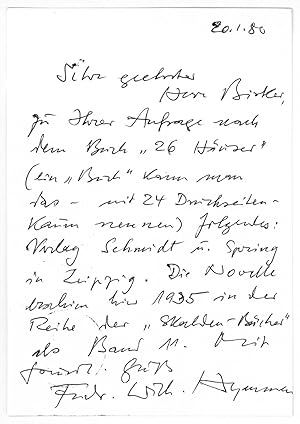 20.1.80
Sehr geehrter
Herr Birker,
zu Ihrer Anfrage nach
dem Buch „26 Häuser"
(ein „Buch" kann man
das - mit 24 Druckseiten -
kaum nennen) folgendes:
Verlag Schmidt u. Spring
in Leipzig. Die Novelle
erschien hier 1935 in der
Reihe der „Skalden-Bücher"
als Band 11. Mit
freundl. Gruß
Friedr. Wilh. Hymmen